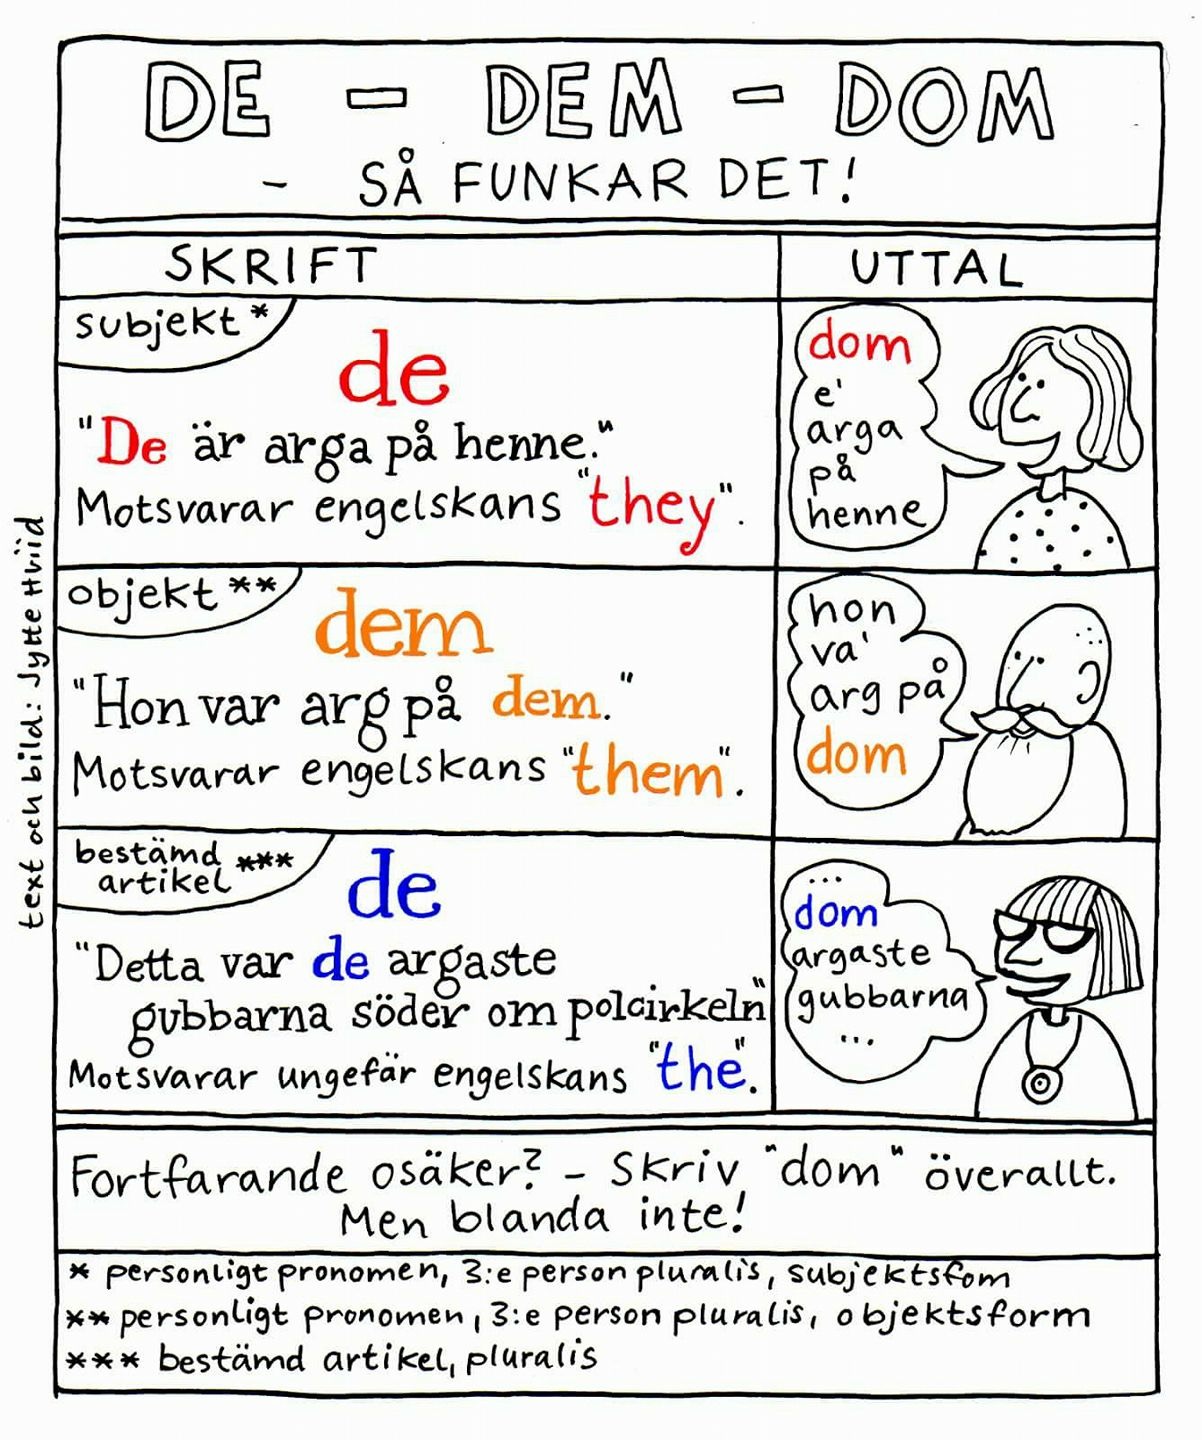 DE - DEM - DOM
- SÅ FUNKAR DET!
SKRIFT
UTTAL
subjekt *
de
"De är arga på henne."
Motsvarar engelskans "they".
dom
e'
arga
på
henne
objekt **
dem
"Hon var arg på dem."
Motsvarar engelskans "them".
hon
va'
arg på
dom
bestämd ***
artikel
de
"Detta var de argaste
gubbarna söder om polcirkeln"
Motsvarar ungefär engelskans "the".
...
dom
argaste
gubbarna
...
Fortfarande osäker? - Skriv "dom" överallt.
Men blanda inte!
* personligt pronomen, 3:e person pluralis, subjektsfom
** personligt pronomen, 3:e person pluralis, objektsform
*** bestämd artikel, pluralis
text och bild: Jytte Hviid